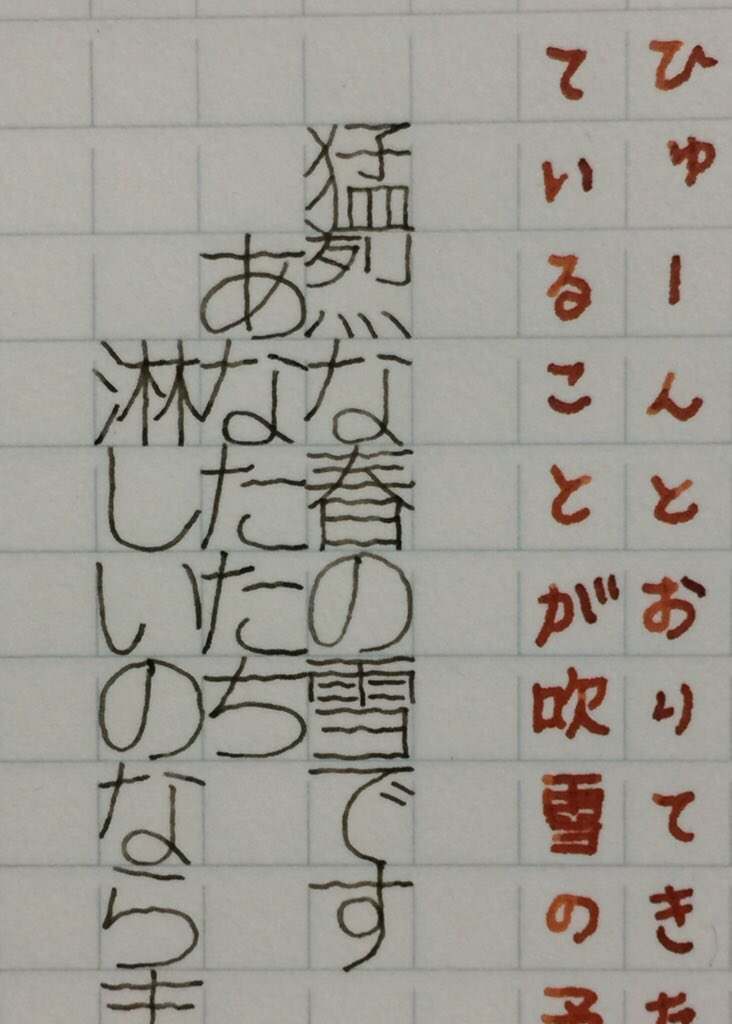 ひゅーんとおりてきた
ていることが吹雪の子
猛烈な春の雪です
あなたたち
淋しいのなら